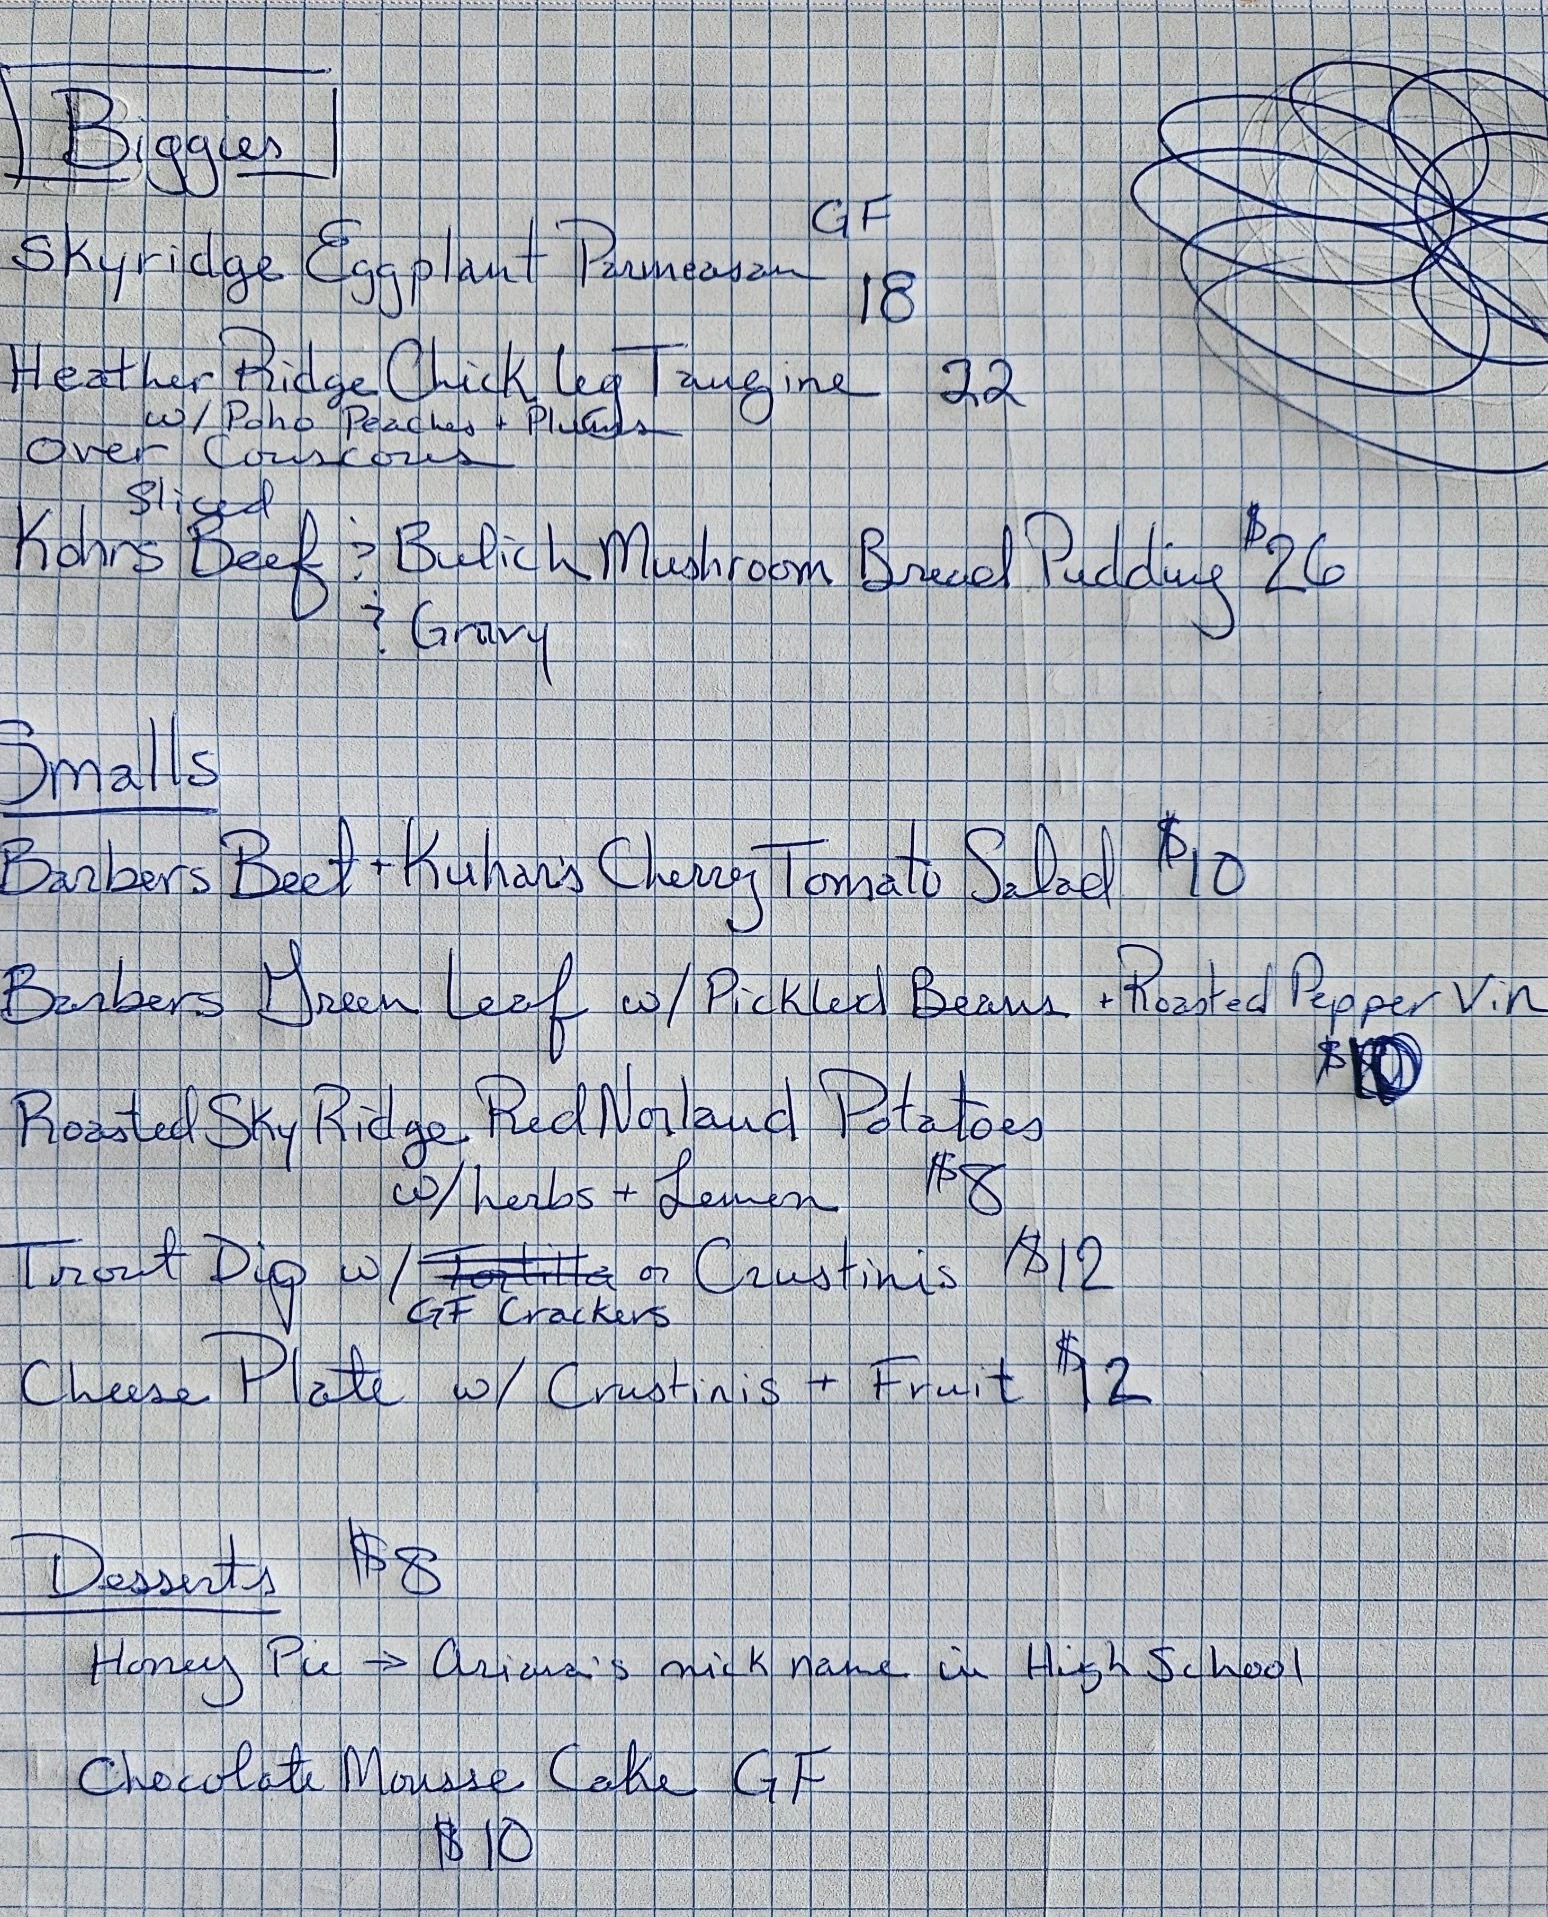 Biggies
GF
Skyridge Eggplant Parmeasan
18
Heather Ridge Chick leg Taugine 22
w/ Poho Peaches + Plums
Over Couscous
Sliced
Kohns Beef & Bulich Mushroom Bread Pudding $26
& Gravy
Smalls
Barbers Beet + Kuhar's Cherry Tomato Salad $10
Barbers Green Leaf w/ Pickled Beans + Roasted Pepper Vin
$10
Roasted Sky Ridge Red Norland Potatoes
w/ herbs + Lemon $8
Trout Dip w/ Tortilla or Crustinis $12
GF Crackers
Cheese Plate w/ Crustinis + Fruit $12
Desserts $8
Honey Pie → Ariana's nick name in High School
Chocolate Mousse Cake GF
$10